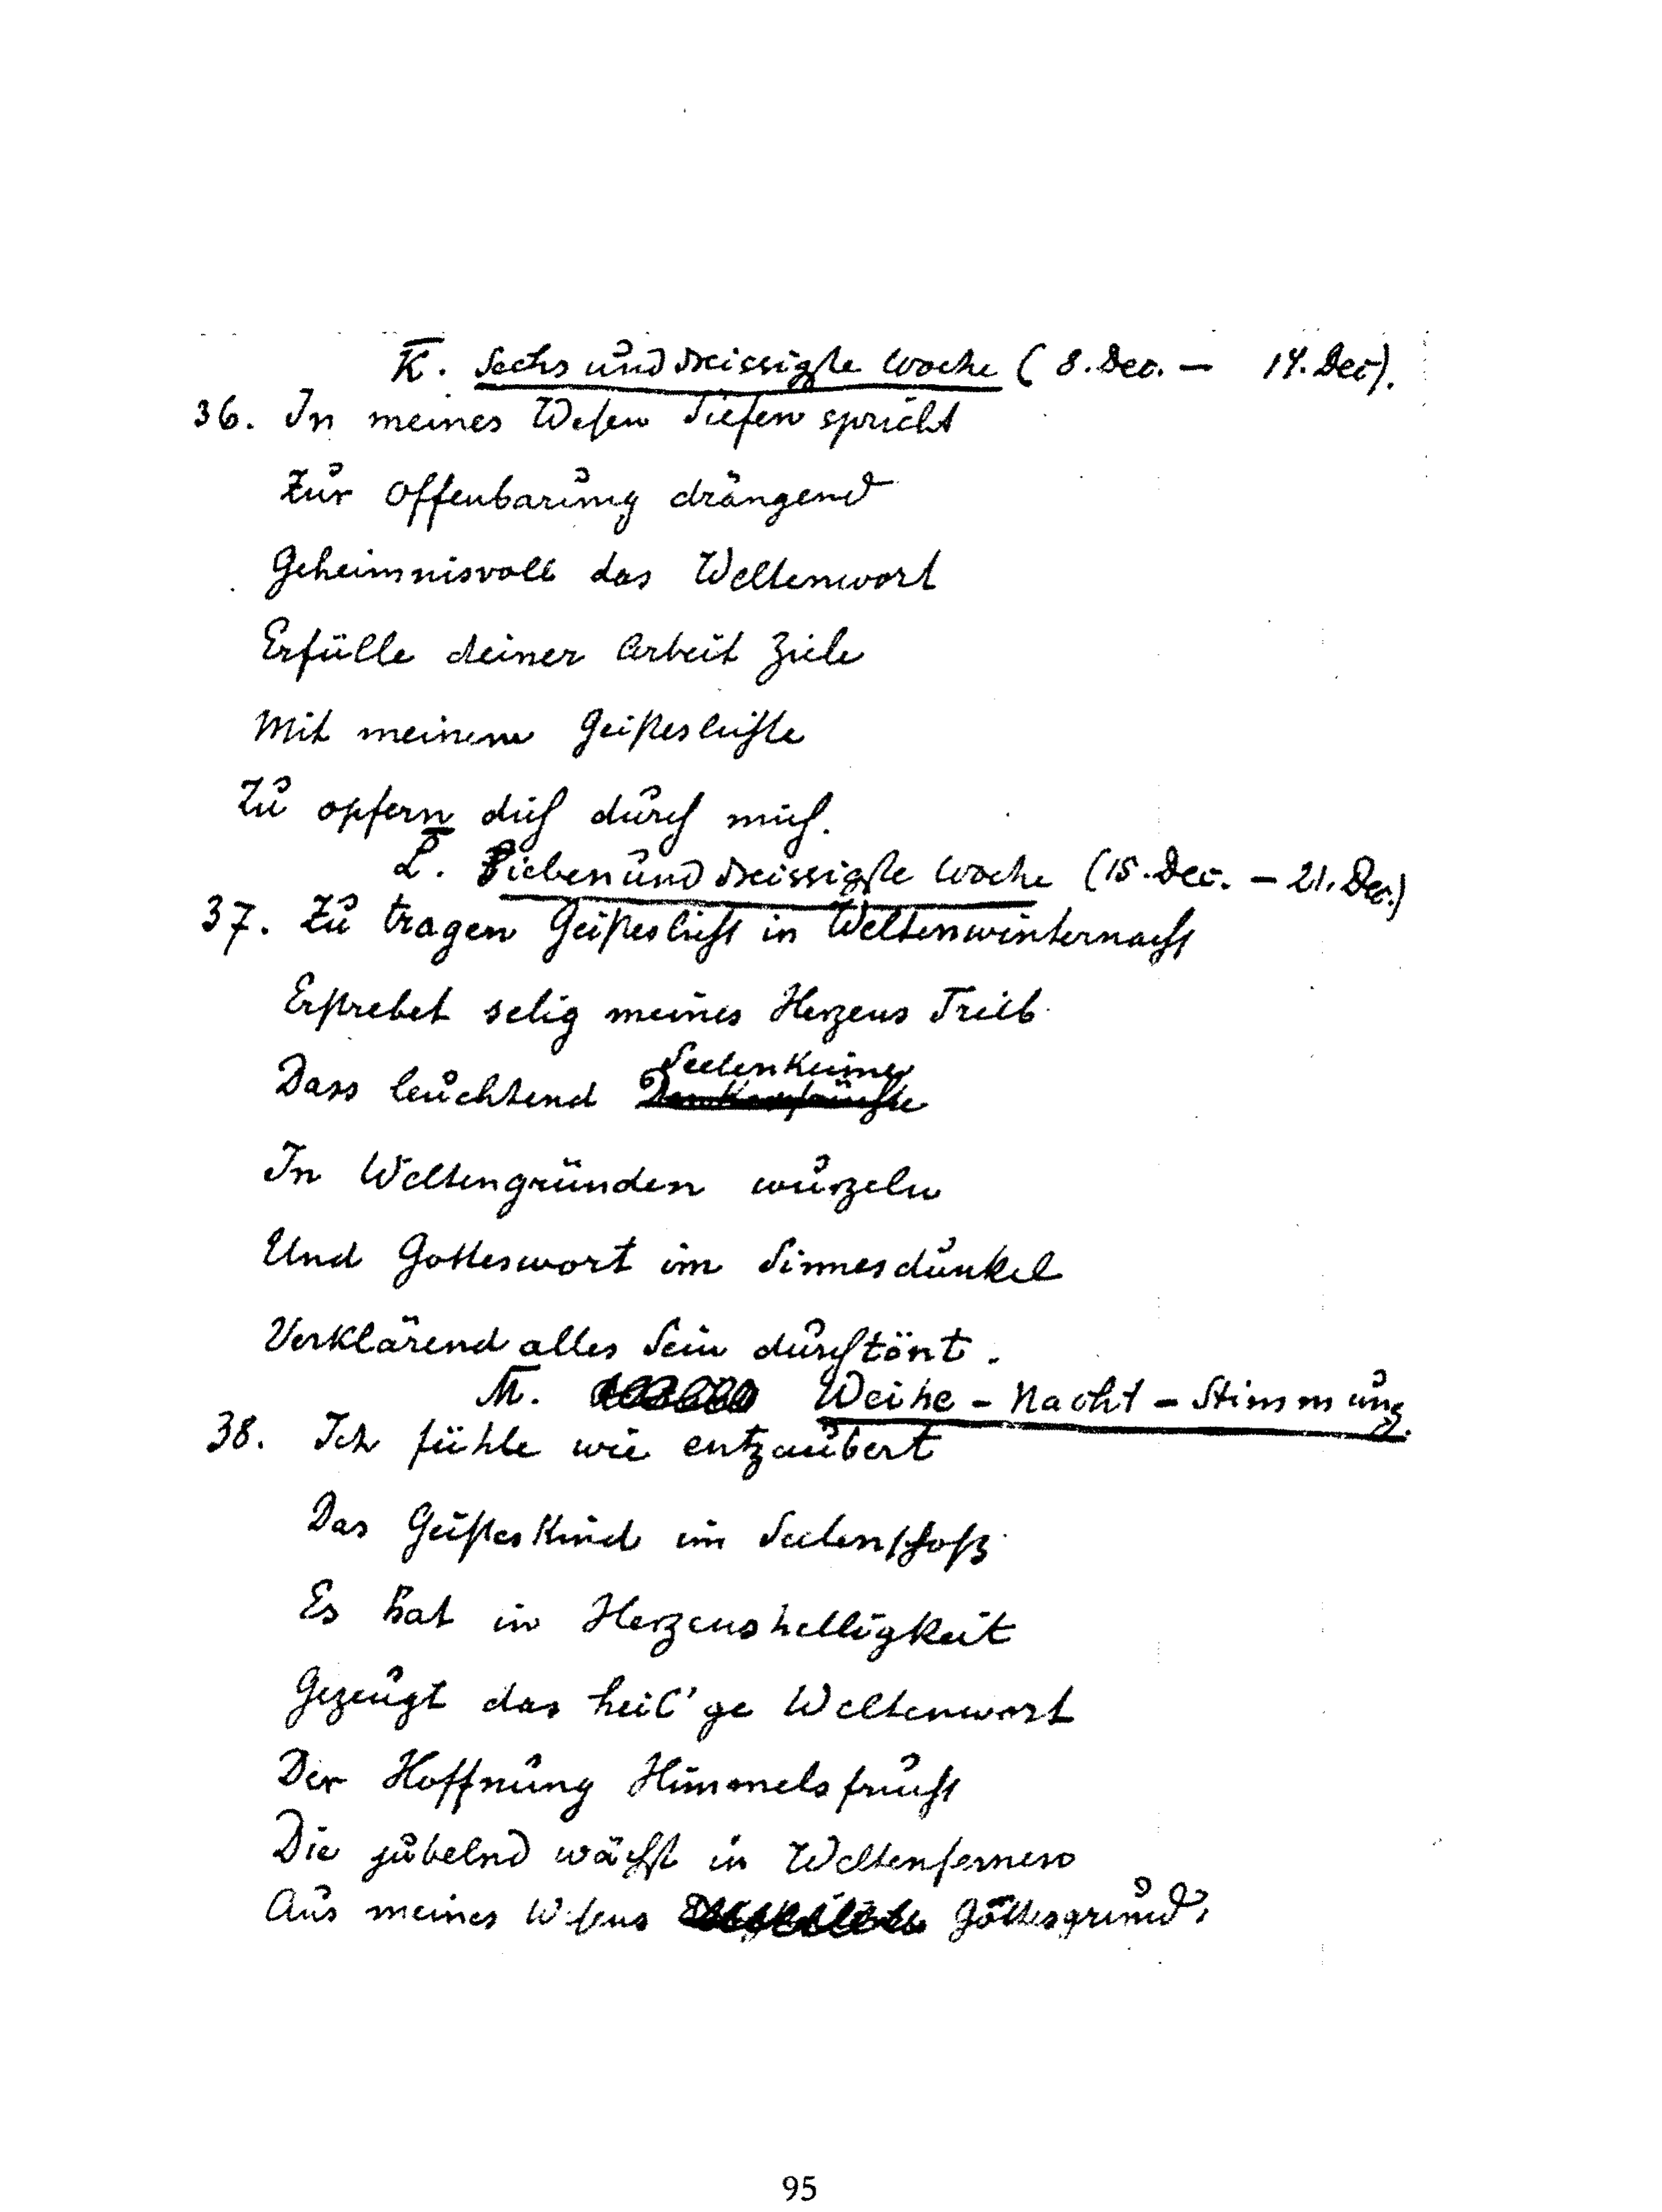 K̅. Sechsunddreissigste Woche (8. Dec. – 14. Dec).
36. In meines Wesen Tiefen spricht
Zur Offenbarung drängend
Geheimnisvoll das Weltenwort
Erfülle deiner Arbeit Ziele
Mit meinem Geisteslichte
Zu opfern dich durch mich.
L̅. Siebenunddreissigste Woche (15. Dec. – 21. Dec.)
37. Zu tragen Geisteslicht in Weltenwinternacht
Erstrebet selig meines Herzens Trieb
Seelenkeime
Dass leuchtend
In Weltengründen wurzeln
Und Gotteswort im Sinnesdunkel
Verklärend alles Sein durchtönt.
M̅. Weihe-Nacht-Stimmung.
38. Ich fühle wie entzaubert
Das Geisteskind im Seelenschoß
Es hat in Herzenshelligkeit
Gezeugt das heil'ge Weltenwort
Der Hoffnung Himmelsfrucht
Die jubelnd wächst in Weltenfernen
Aus meines Wesens Gottesgrund.
95